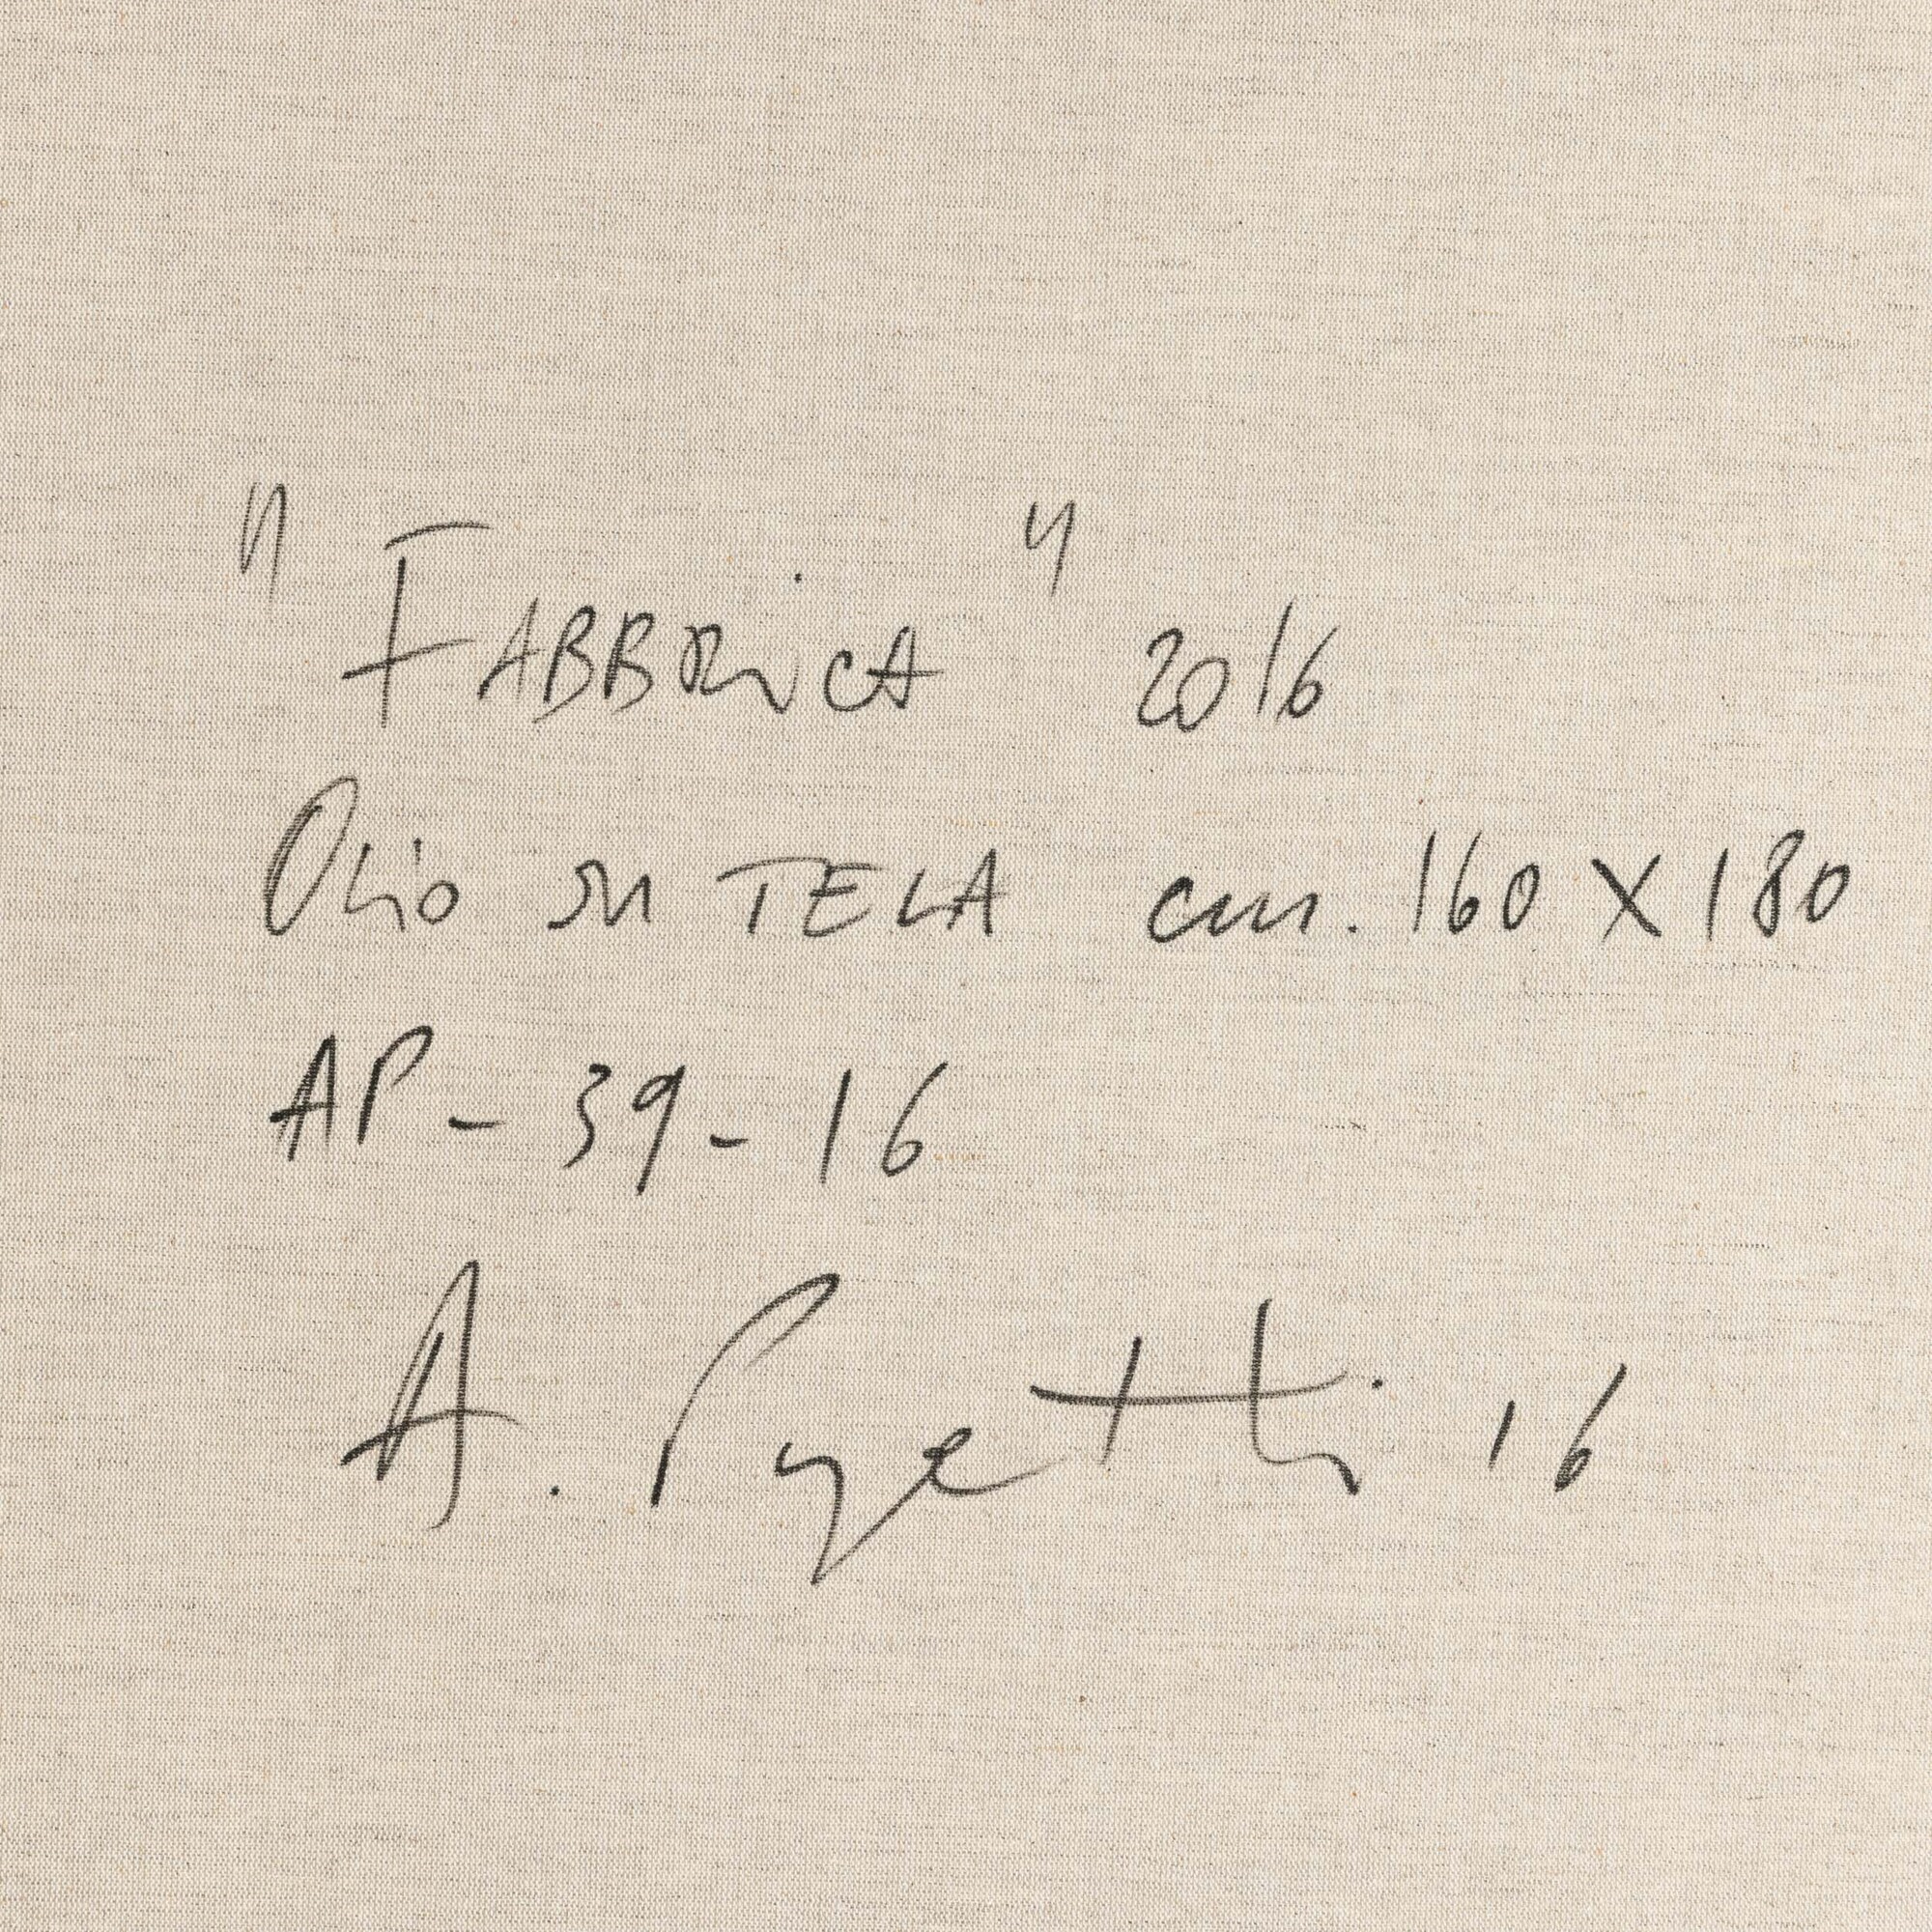 "FABBRiCA" 2016
Olio su TELA cm. 160 X 180
AP - 39 - 16
A. 16